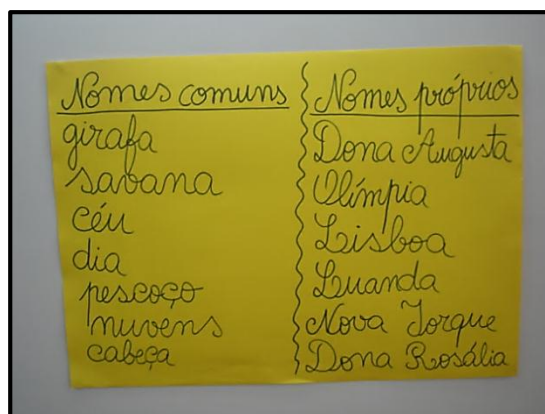 Nomes comuns
girafa
savana
céu
dia
pescoço
nuvens
cabeça
Nomes próprios
Dona Augusta
Olímpia
Lisboa
Luanda
Nova Iorque
Dona Rosália